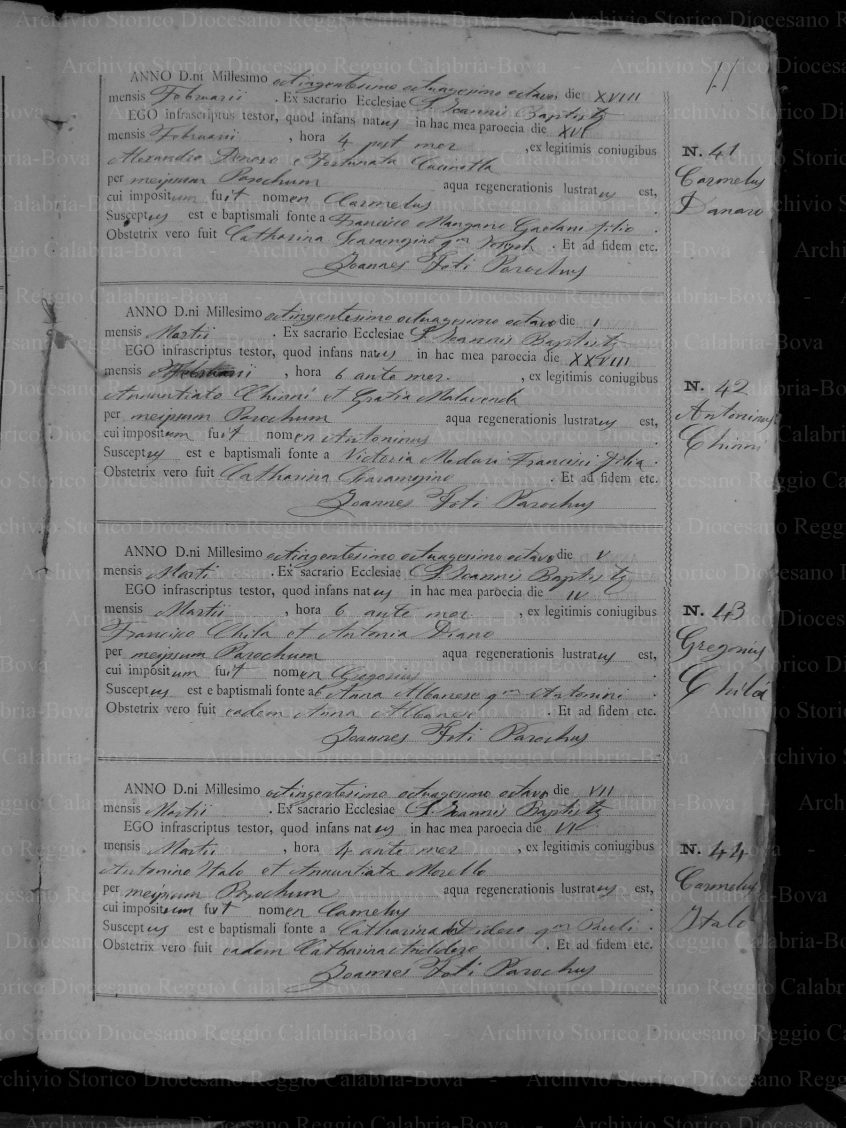 11
ANNO D.ni Millesimo octingentesimo octuagesimo octavo die XVIII
mensis Februarii . Ex sacrario Ecclesiae S. Joannis Baptistę
EGO infrascriptus testor, quod infans natus in hac mea paroecia die XVI
mensis Februarii , hora 4 post mer , ex legitimis coniugibus
N. 41
Carmelus
Danaro
Alexandro Denaro e Fortunata
per meipsum Parochum aqua regenerationis lustratus est,
cui impositum fuit nomen Carmelus .
Susceptus est e baptismali fonte a Francisco Mangano Gaetani filio .
Obstetrix vero fuit Catharina Scaramozino qm Joseph . Et ad fidem etc.
Joannes Foti Parochus
ANNO D.ni Millesimo octingentesimo octuagesimo octavo die I
mensis Martii . Ex sacrario Ecclesiae S. Joannis Baptistę
EGO infrascriptus testor, quod infans natus in hac mea paroecia die XXVIII
mensis Februarii , hora 6 ante mer. , ex legitimis coniugibus
N. 42
Antoninus
Chirri
Annuntiato Chirri et Gratia Malavenda
per meipsum Parochum aqua regenerationis lustratus est,
cui impositum fuit nomen Antoninus .
Susceptus est e baptismali fonte a Victoria Modari Francisci filia .
Obstetrix vero fuit Catharina Scaramozino . Et ad fidem etc.
Joannes Foti Parochus
ANNO D.ni Millesimo octingentesimo octuagesimo octavo die V
mensis Marti . Ex sacrario Ecclesiae S. Joannis Baptistę
EGO infrascriptus testor, quod infans natus in hac mea paroecia die IV
mensis Martii , hora 6 ante mer , ex legitimis coniugibus
N. 43
Gregorius
Chilá
Francisco Chila et Antonia Diano
per meipsum Parochum aqua regenerationis lustratus est,
cui impositum fuit nomen Gregorius .
Susceptus est e baptismali fonte a Anna Albanese qm Antonini .
Obstetrix vero fuit eadem Anna Albanese . Et ad fidem etc.
Joannes Foti Parochus
ANNO D.ni Millesimo octingentesimo octuagesimo octavo die VII
mensis Martii . Ex sacrario Ecclesiae S. Joannis Baptistę
EGO infrascriptus testor, quod infans natus in hac mea paroecia die VI
mensis Martii , hora 4 ante mer , ex legitimis coniugibus
N. 44
Carmelus
Italo
Antonino Italo et Annuntiata Morello
per meipsum Parochum aqua regenerationis lustratus est,
cui impositum fuit nomen Camelus .
Susceptus est e baptismali fonte a Catharina Andidero qm Pauli .
Obstetrix vero fuit eadem Catharina Andidero . Et ad fidem etc.
Joannes Foti Parochus